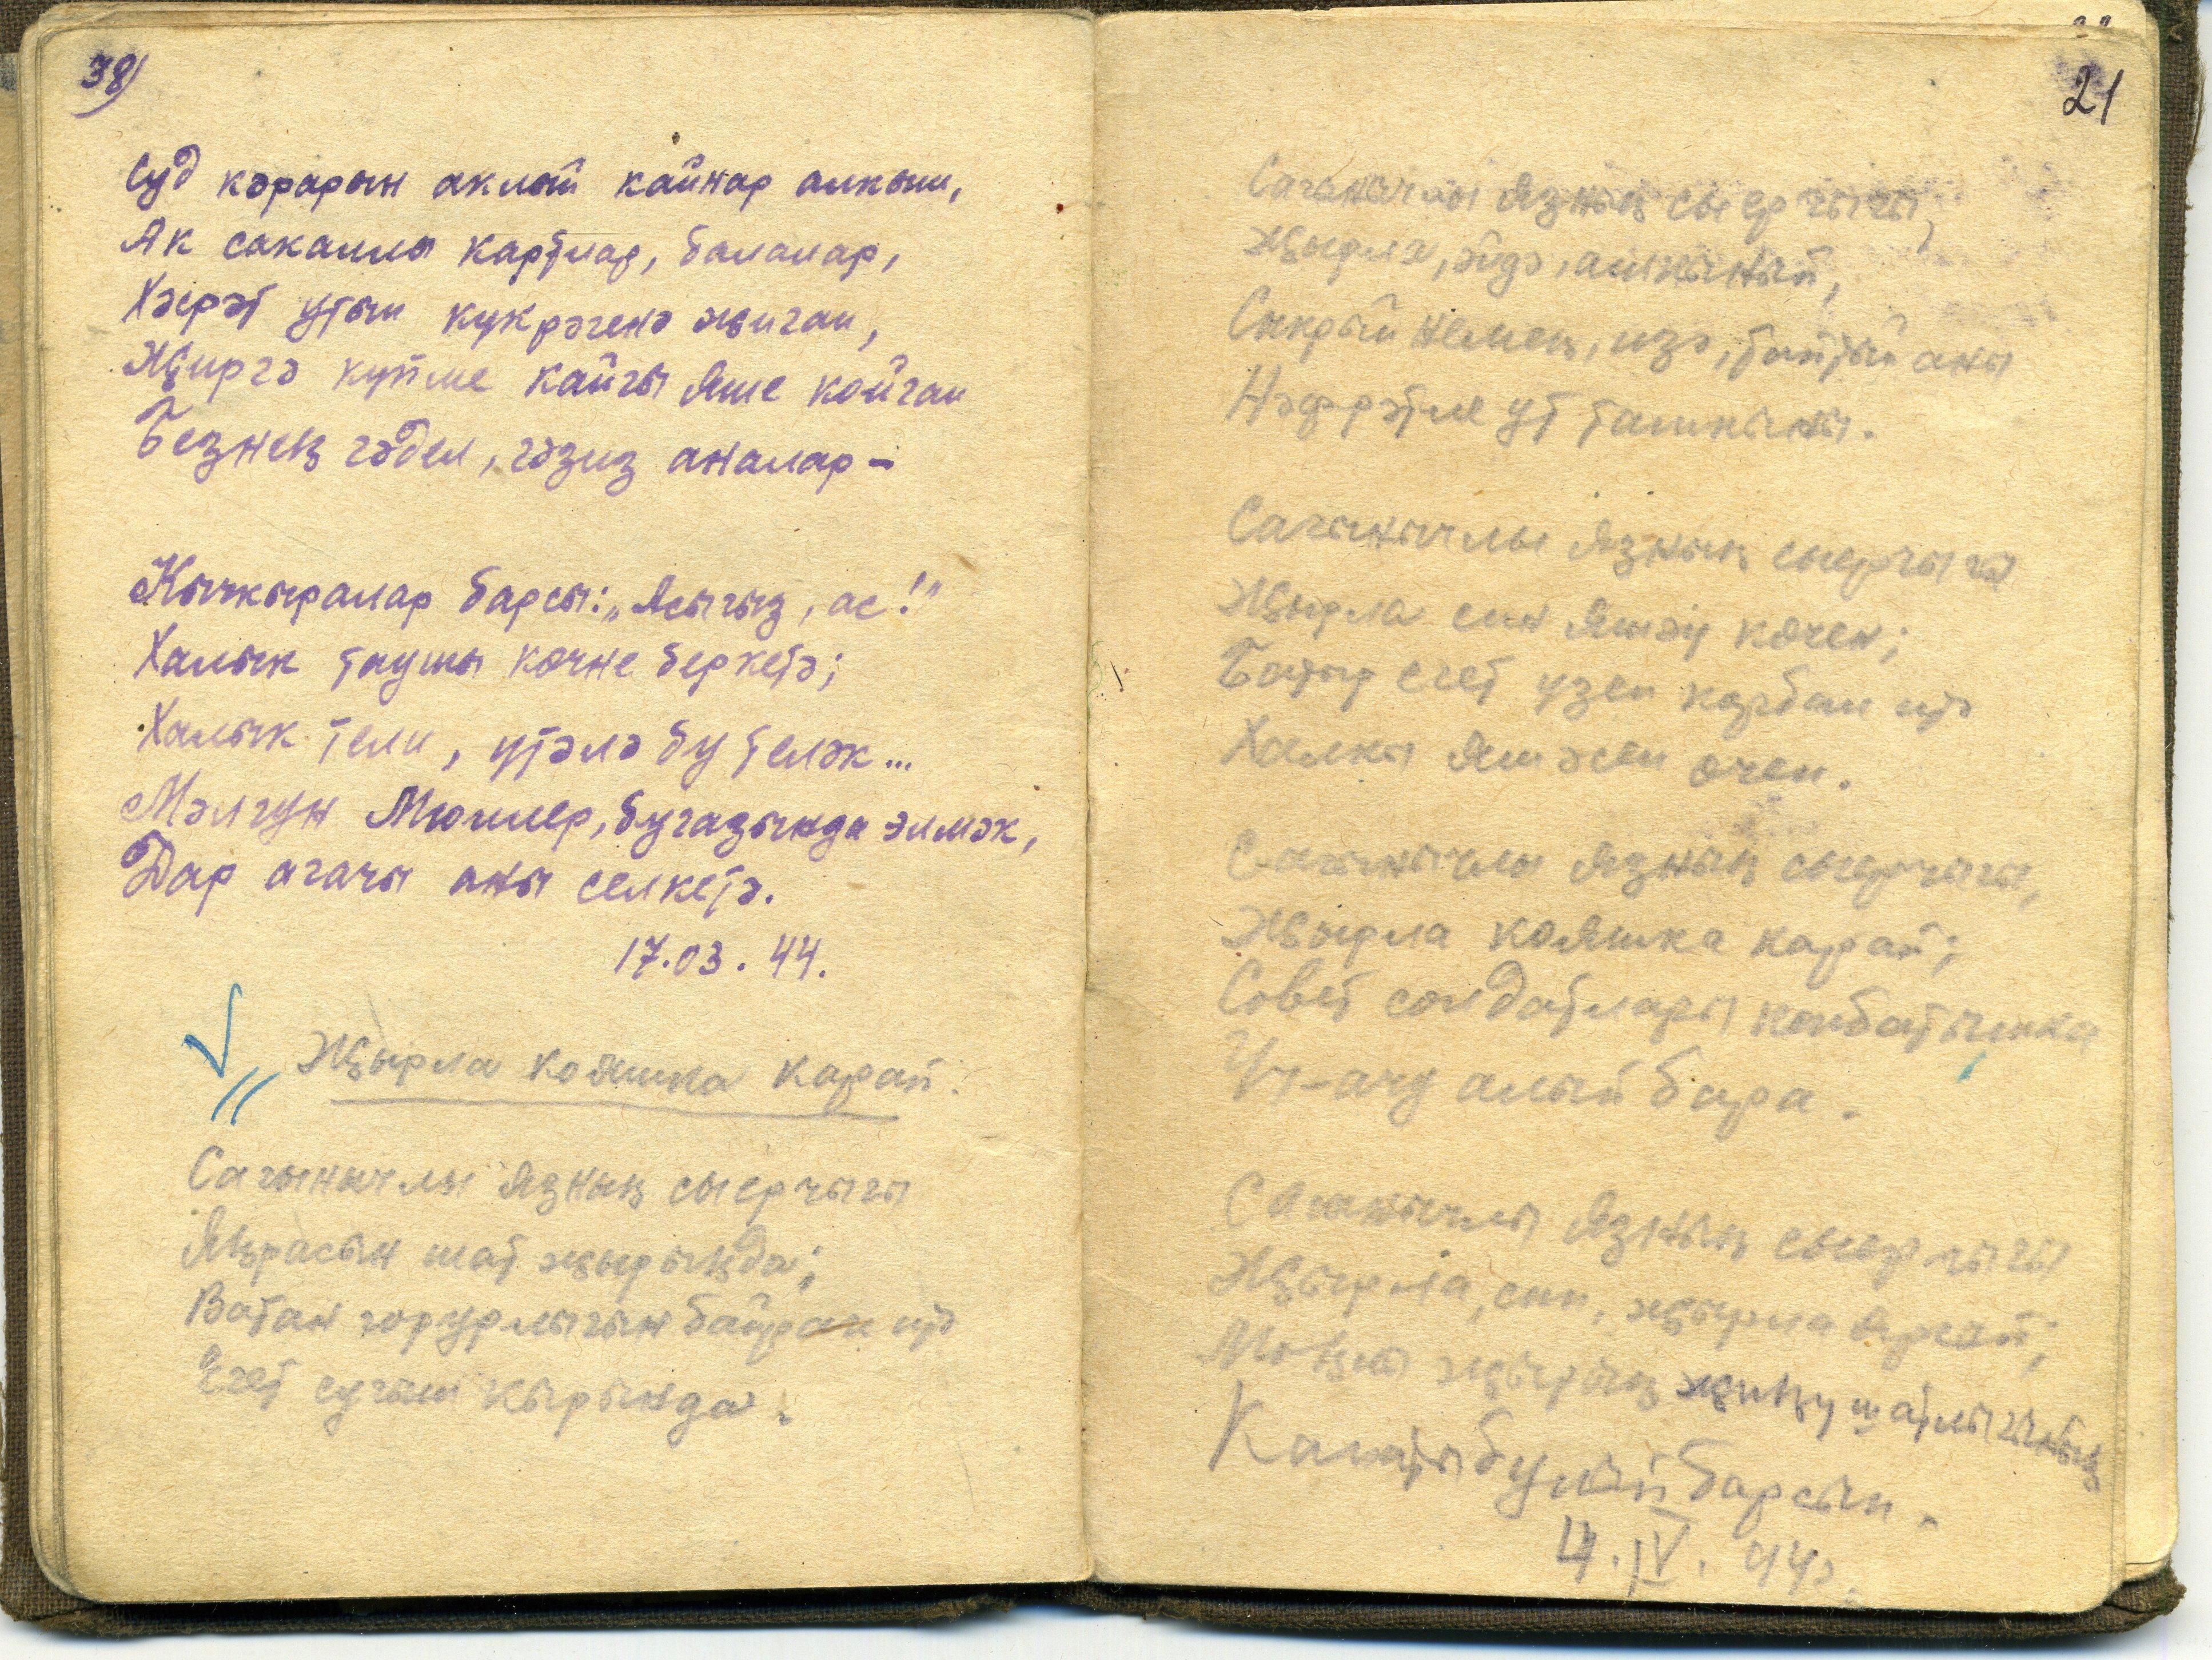 38)
Суд карарын аклый кайнар алкыш,
Ак сакаллы картлар, балалар,
Хәсрәт утын күкрәгенә җыйган,
Җиргә күпме кайгы яше койган
Безнең гадел, газиз аналар –
Кычкыралар барсы: „Асыгыз, ас!"
Халык таушы көчне беркетә;
Халык тели, үтәлә бу теләк...
Мәлгун Мюллер, бугазында элмәк,
Дар агачы аны селкетә.
17.03.44.
Җырла кояшка карап.
Сагынычлы язның сыерчыгы
Яңрасын шат җырыңда;
Ватан горурлыгын байрак итә
Егет сугыш кырында.
21
Сагынычлы язның сыерчыгы,
Җырла, әйдә, ашкынып,
Сыкрый немец, изә, батый аны
Нәфрәтле ут ташкыны.
Сагынычлы язның сыерчыгы
Җырла син яшәү көчен;
Батыр егет үзен корбан итә
Халкы яшәсен өчен.
Сагынычлы язның сыерчыгы,
Җырла кояшка карап;
Совет солдатлары көнбатышка
Үч-ачу алып бара.
Сагынычлы язның сыерчыгы
Җырла, син, җырла ярсып;
Моңлы җырың җиңү шатлыгының
Канаты булып барсын.
4.IV.44.